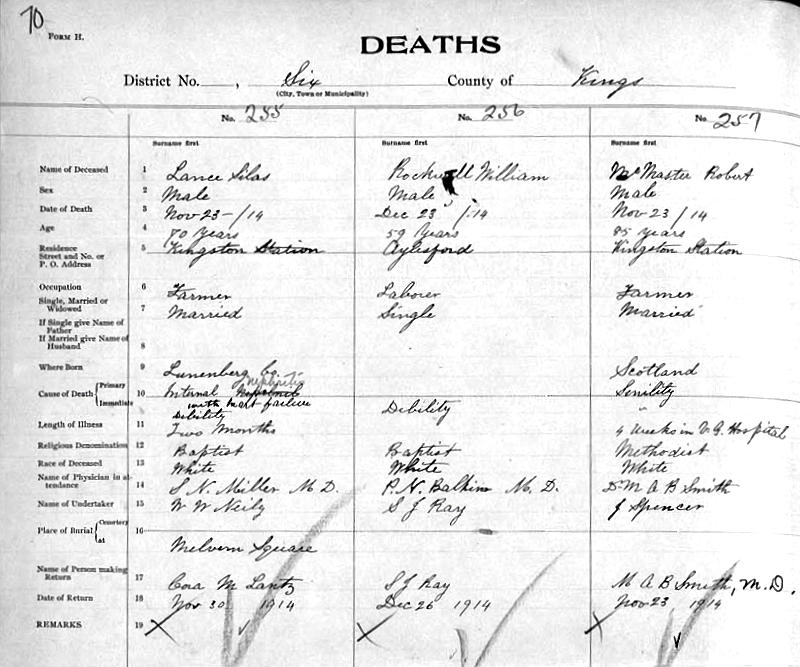 70
FORM H.
DEATHS
District No. , Six County of Kings
(City, Town or Municipality)
No. 255 No. 256 No. 257
Surname first Surname first Surname first
Name of Deceased 1 Lance Silas Rockwell William McMaster Robert
Sex 2 Male Male Male
Date of Death 3 Nov 23 - /14 Dec 23 /14 Nov 23 /14
Age 4 70 Years 59 Years 85 years
Residence Street and No. or P. O. Address 5 Kingston Station Aylesford Kingston Station
Occupation 6 Farmer Laborer Farmer
Single, Married or Widowed 7 Married Single Married
If Single give Name of Father
If Married give Name of Husband 8
Where Born 9 Lunenberg Co. Scotland
Cause of Death { Primary Immediate 10 Internal Nephritis Senility
with heart failure
Debility Debility "
Length of Illness 11 Two Months 4 Weeks in V.G. Hospital
Religious Denomination 12 Baptist Baptist Methodist
Race of Deceased 13 White White White
Name of Physician in attendance 14 S. N. Miller M. D. P. N. Balkim M. D. Dr M A B Smith
Name of Undertaker 15 W W Neily S J Ray J Spencer
Place of Burial { Cemetery At 16
Melvern Square
Name of Person making Return 17 Cora M Lantz S J Ray M A B Smith, M.D.
Date of Return 18 Nov 30 1914 Dec 26 1914 Nov 23 1914
REMARKS 19